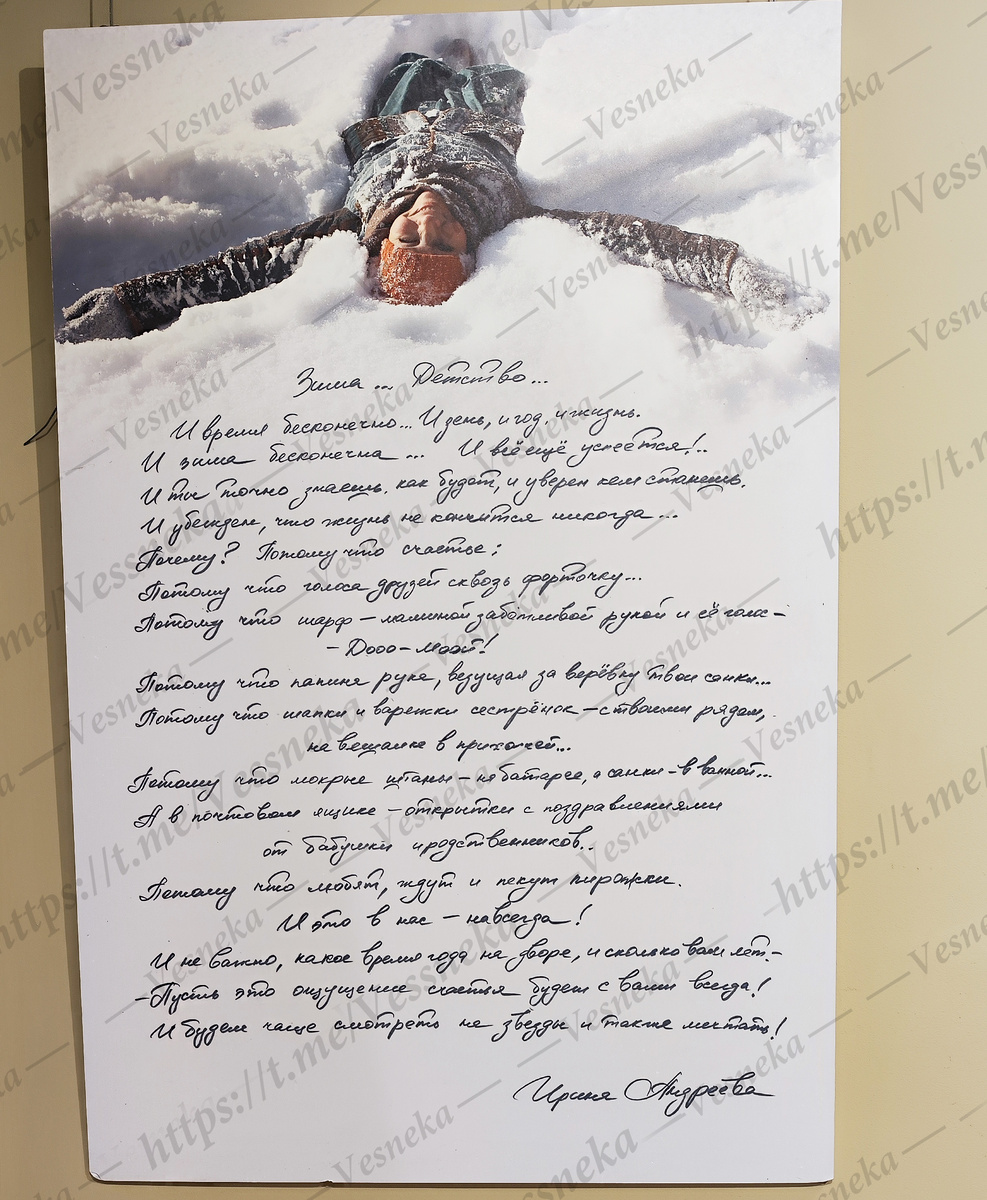 Зима... Детство...
И время бесконечно... И день, и год, и жизнь.
И зима бесконечна ... И всё ещё успеется!..
И ты точно знаешь, как будет, и уверен кем станешь.
И убеждён, что жизнь не кончится никогда...
Почему? Потому что счастье:
Потому что голоса друзей сквозь форточку...
Потому что шарф – маминой заботливой рукой и её голос –
– Дооо-мооой!
Потому что папина рука, везущая за верёвку твои санки...
Потому что шапки и варежки сестрёнок – с твоими рядом,
на вешалке в прихожей...
Потому что мокрые штаны – на батарее, а санки – в ванной...
А в почтовом ящике – открытки с поздравлениями
от бабушки и родственников..
Потому что любят, ждут и пекут пирожки.
И это в нас – навсегда!
И не важно, какое время года на дворе, и сколько вам лет. –
– Пусть это ощущение счастья будет с вами всегда!
И будем чаще смотреть на звёзды и также мечтать!
Ирина Андреева
https://t.me/Vessneka
— Vesneka —